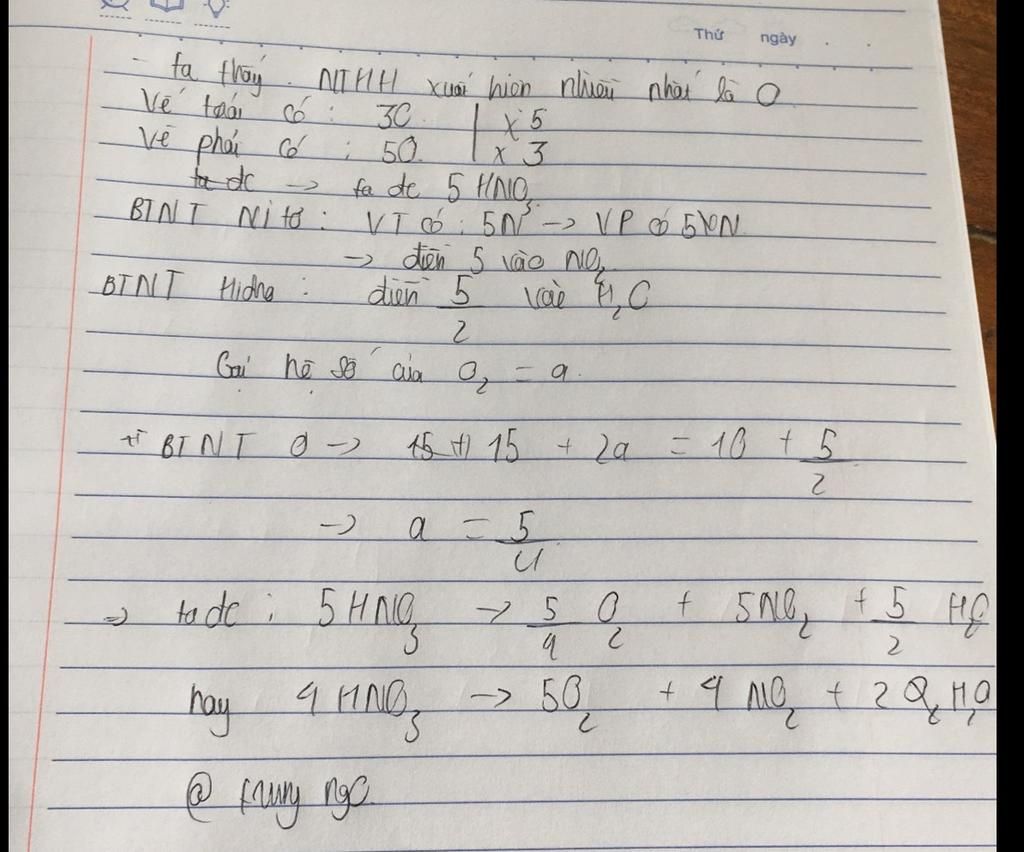 Thứ ngày
- ta thấy NTHH xuất hiện nhiều nhất là O
Vế trái có : 3O | x 5
Vế phải có : 5O | x 3
ta dc → ta dc 5 HNO3
BTNT Nitơ : VT có : 5N → VP có 5 N
→ điền 5 vào NO2
BTNT Hidro : điền 5/2 vào H2O
Gọi hệ số của O2 = a
+ BTNT O → 15 + 15 + 2a = 10 + 5/2
→ a = 5/4
⇒ ta dc : 5 HNO3 → 5/4 O2 + 5NO2 + 5/2 H2O
hay 4 HNO3 → 5O2 + 4 NO2 + 2 O2 H2O
@ trung ngo